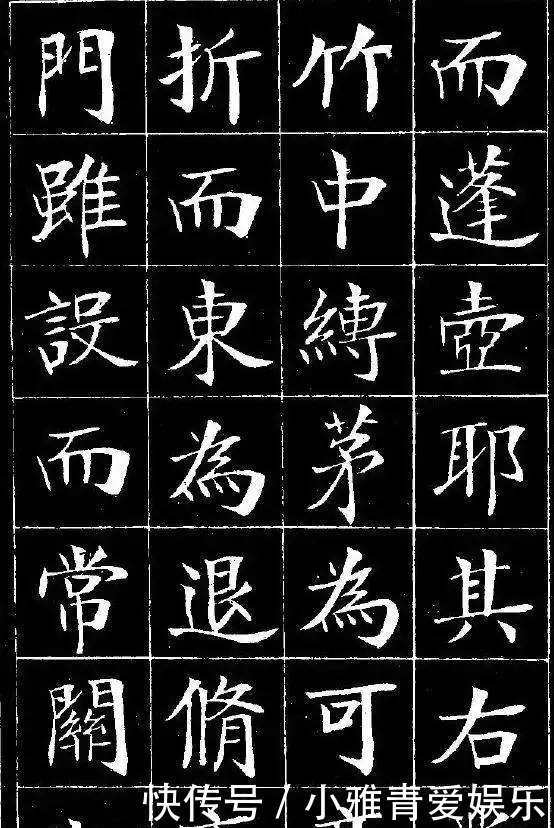 而蓬壺耶其右
竹中縛茅為可
折而東為退脩
門雖設而常關
快传号 / 小雅青爱娱乐